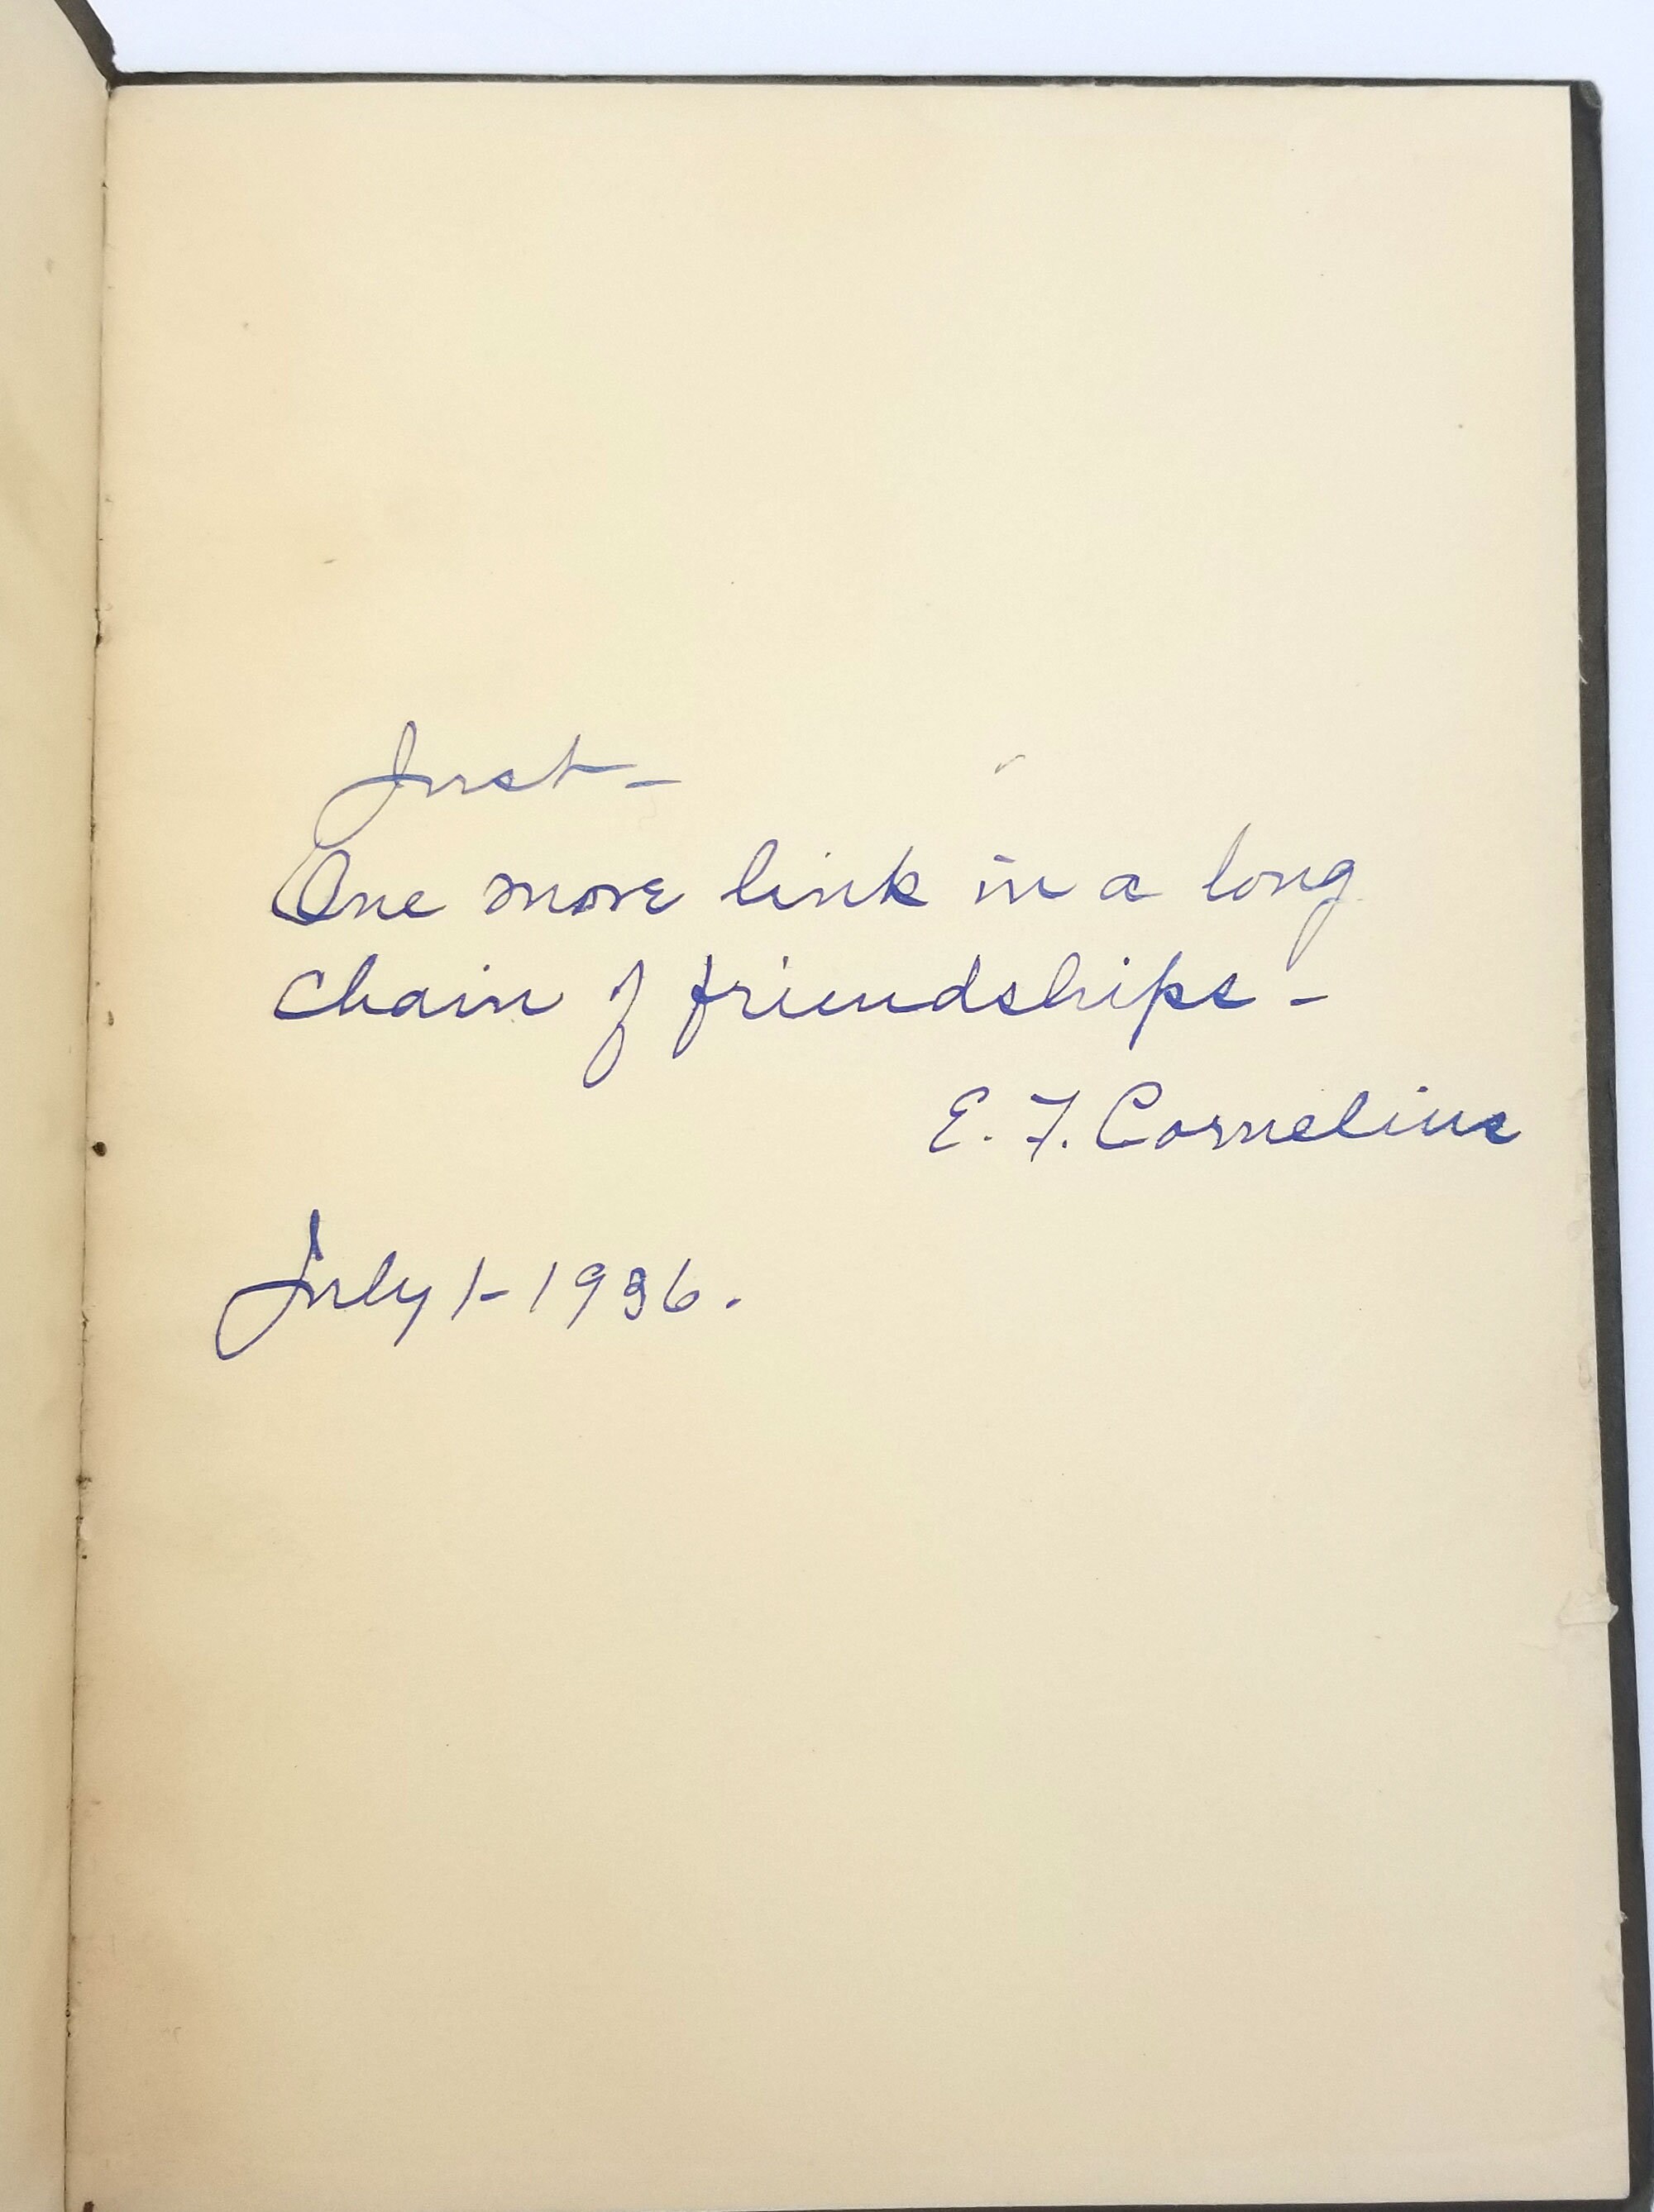 Just -
One more link in a long
chain of friendships -
E. F. Cornelius
July 1 - 1936.